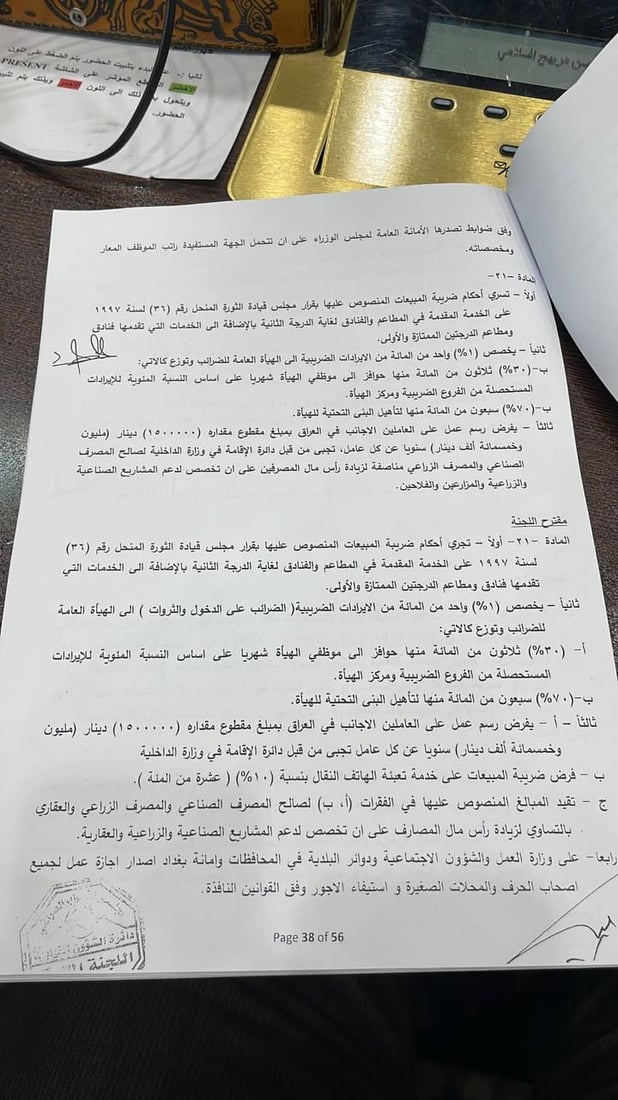 ثانيا :- عند البدء بتثبيت الحضور يتم الضغط على اللون
الاخضر المؤشر على الشاشة PRESENT
ويتحول الى اللون الاحمر وبذلك يتم
الحضور.
مريهج السلامي
وفق ضوابط تصدرها الأمانة العامة لمجلس الوزراء على ان تتحمل الجهة المستفيدة راتب الموظف المعار
ومخصصاته.
المادة -٢١-
أولاً – تسري أحكام ضريبة المبيعات المنصوص عليها بقرار مجلس قيادة الثورة المنحل رقم (٣٦) لسنة ١٩٩٧
على الخدمة المقدمة في المطاعم والفنادق لغاية الدرجة الثانية بالإضافة الى الخدمات التي تقدمها فنادق
ومطاعم الدرجتين الممتازة والأولى.
ثانياً – يخصص (١%) واحد من المائة من الايرادات الضريبية الى الهيأة العامة للضرائب وتوزع كالاتي:
ب-(٣٠%) ثلاثون من المائة منها حوافز الى موظفي الهيأة شهريا على اساس النسبة المئوية للإيرادات
المستحصلة من الفروع الضريبية ومركز الهيأة.
ب-(٧٠%) سبعون من المائة منها لتأهيل البنى التحتية للهيأة.
ثالثاً – يفرض رسم عمل على العاملين الاجانب في العراق بمبلغ مقطوع مقداره (١٥٠٠٠٠٠) دينار (مليون
وخمسمائة ألف دينار) سنويا عن كل عامل، تجبى من قبل دائرة الإقامة في وزارة الداخلية لصالح المصرف
الصناعي والمصرف الزراعي مناصفة لزيادة رأس مال المصرفين على ان تخصص لدعم المشاريع الصناعية
والزراعية والمزارعين والفلاحين.
مقترح اللجنة
المادة -٢١- أولاً – تجري أحكام ضريبة المبيعات المنصوص عليها بقرار مجلس قيادة الثورة المنحل رقم (٣٦)
لسنة ١٩٩٧ على الخدمة المقدمة في المطاعم والفنادق لغاية الدرجة الثانية بالإضافة الى الخدمات التي
تقدمها فنادق ومطاعم الدرجتين الممتازة والأولى.
ثانياً – يخصص (١%) واحد من المائة من الايرادات الضريبية( الضرائب على الدخول والثروات ) الى الهيأة العامة
للضرائب وتوزع كالاتي:
أ- (٣٠%) ثلاثون من المائة منها حوافز الى موظفي الهيأة شهريا على اساس النسبة المئوية للإيرادات
المستحصلة من الفروع الضريبية ومركز الهيأة.
ب-(٧٠%) سبعون من المائة منها لتأهيل البنى التحتية للهيأة.
ثالثاً – أ – يفرض رسم عمل على العاملين الاجانب في العراق بمبلغ مقطوع مقداره (١٥٠٠٠٠٠) دينار (مليون
وخمسمائة ألف دينار) سنويا عن كل عامل تجبى من قبل دائرة الإقامة في وزارة الداخلية
ب – فرض ضريبة المبيعات على خدمة تعبئة الهاتف النقال بنسبة (١٠%) ( عشرة من المئة ).
ج – تقيد المبالغ المنصوص عليها في الفقرات (أ، ب) لصالح المصرف الصناعي والمصرف الزراعي والعقاري
بالتساوي لزيادة رأس مال المصارف على ان تخصص لدعم المشاريع الصناعية والزراعية والعقارية.
رابعا- على وزارة العمل والشؤون الاجتماعية ودوائر البلدية في المحافظات وامانة بغداد اصدار اجازة عمل لجميع
اصحاب الحرف والمحلات الصغيرة و استيفاء الاجور وفق القوانين النافذة.
دائرة الشؤون
اللجنة
Page 38 of 56